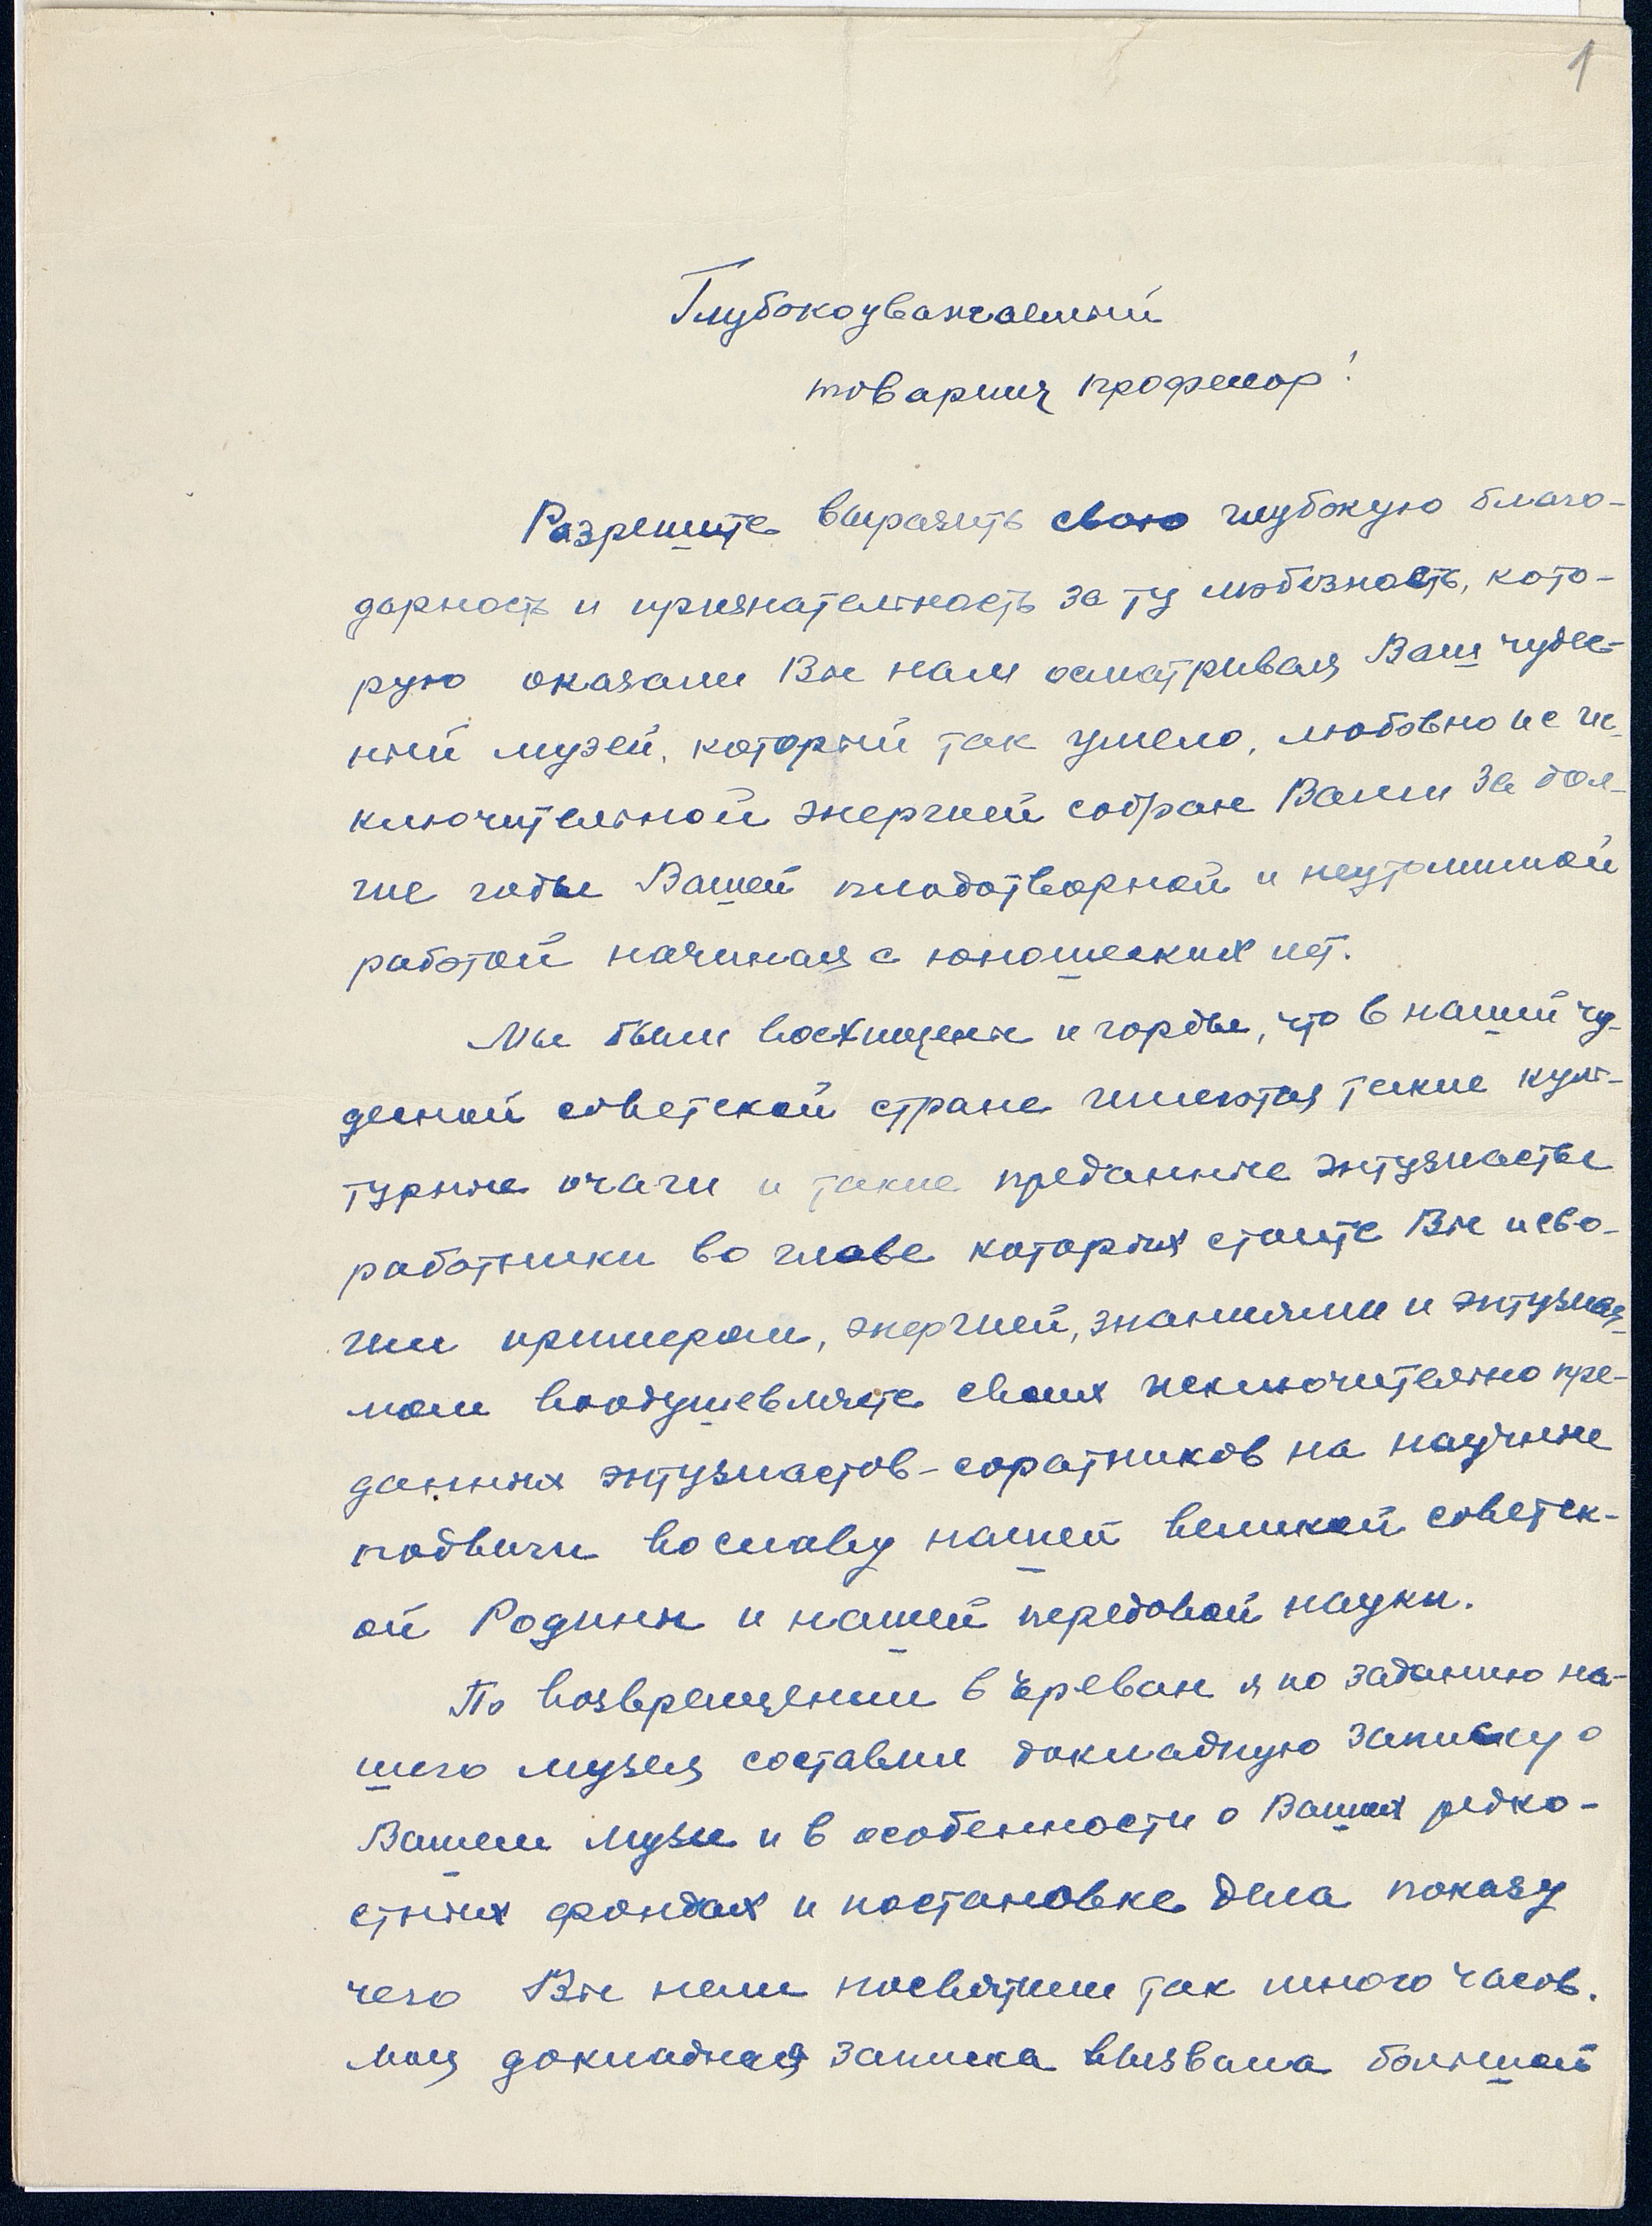 1
Глубокоуважаемый
товарищ профессор!
Разрешите выразить свою глубокую благо-
дарность и признательность за ту любезность, кото-
рую оказали Вы нам осматривая Ваш чудес-
ный музей, который так умело, любовно и с ис-
ключительной энергией собран Вами за дол-
гие годы Вашей плодотворной и неутомимой
работой начиная с юношеских лет.
Мы были восхищены и горды, что в нашей чу-
десной советской стране имеются такие куль-
турные очаги и такие преданные энтузиасты
работники во главе которых стоите Вы и сво-
им примером, энергией, знаниями и энтузиаз-
мом воодушевляете своих исключительно пре-
данных энтузиастов-соратников на научные
подвиги во славу нашей великой советск-
ой Родины и нашей передовой науки.
По возвращении в Ереван я по заданию на-
шего музея составил докладную записку о
Вашем музее и в особенности о Ваших редко-
стных фондах и постановке дела показу
чего Вы нам посвятили так много часов.
Моя докладная записка вызвала большой